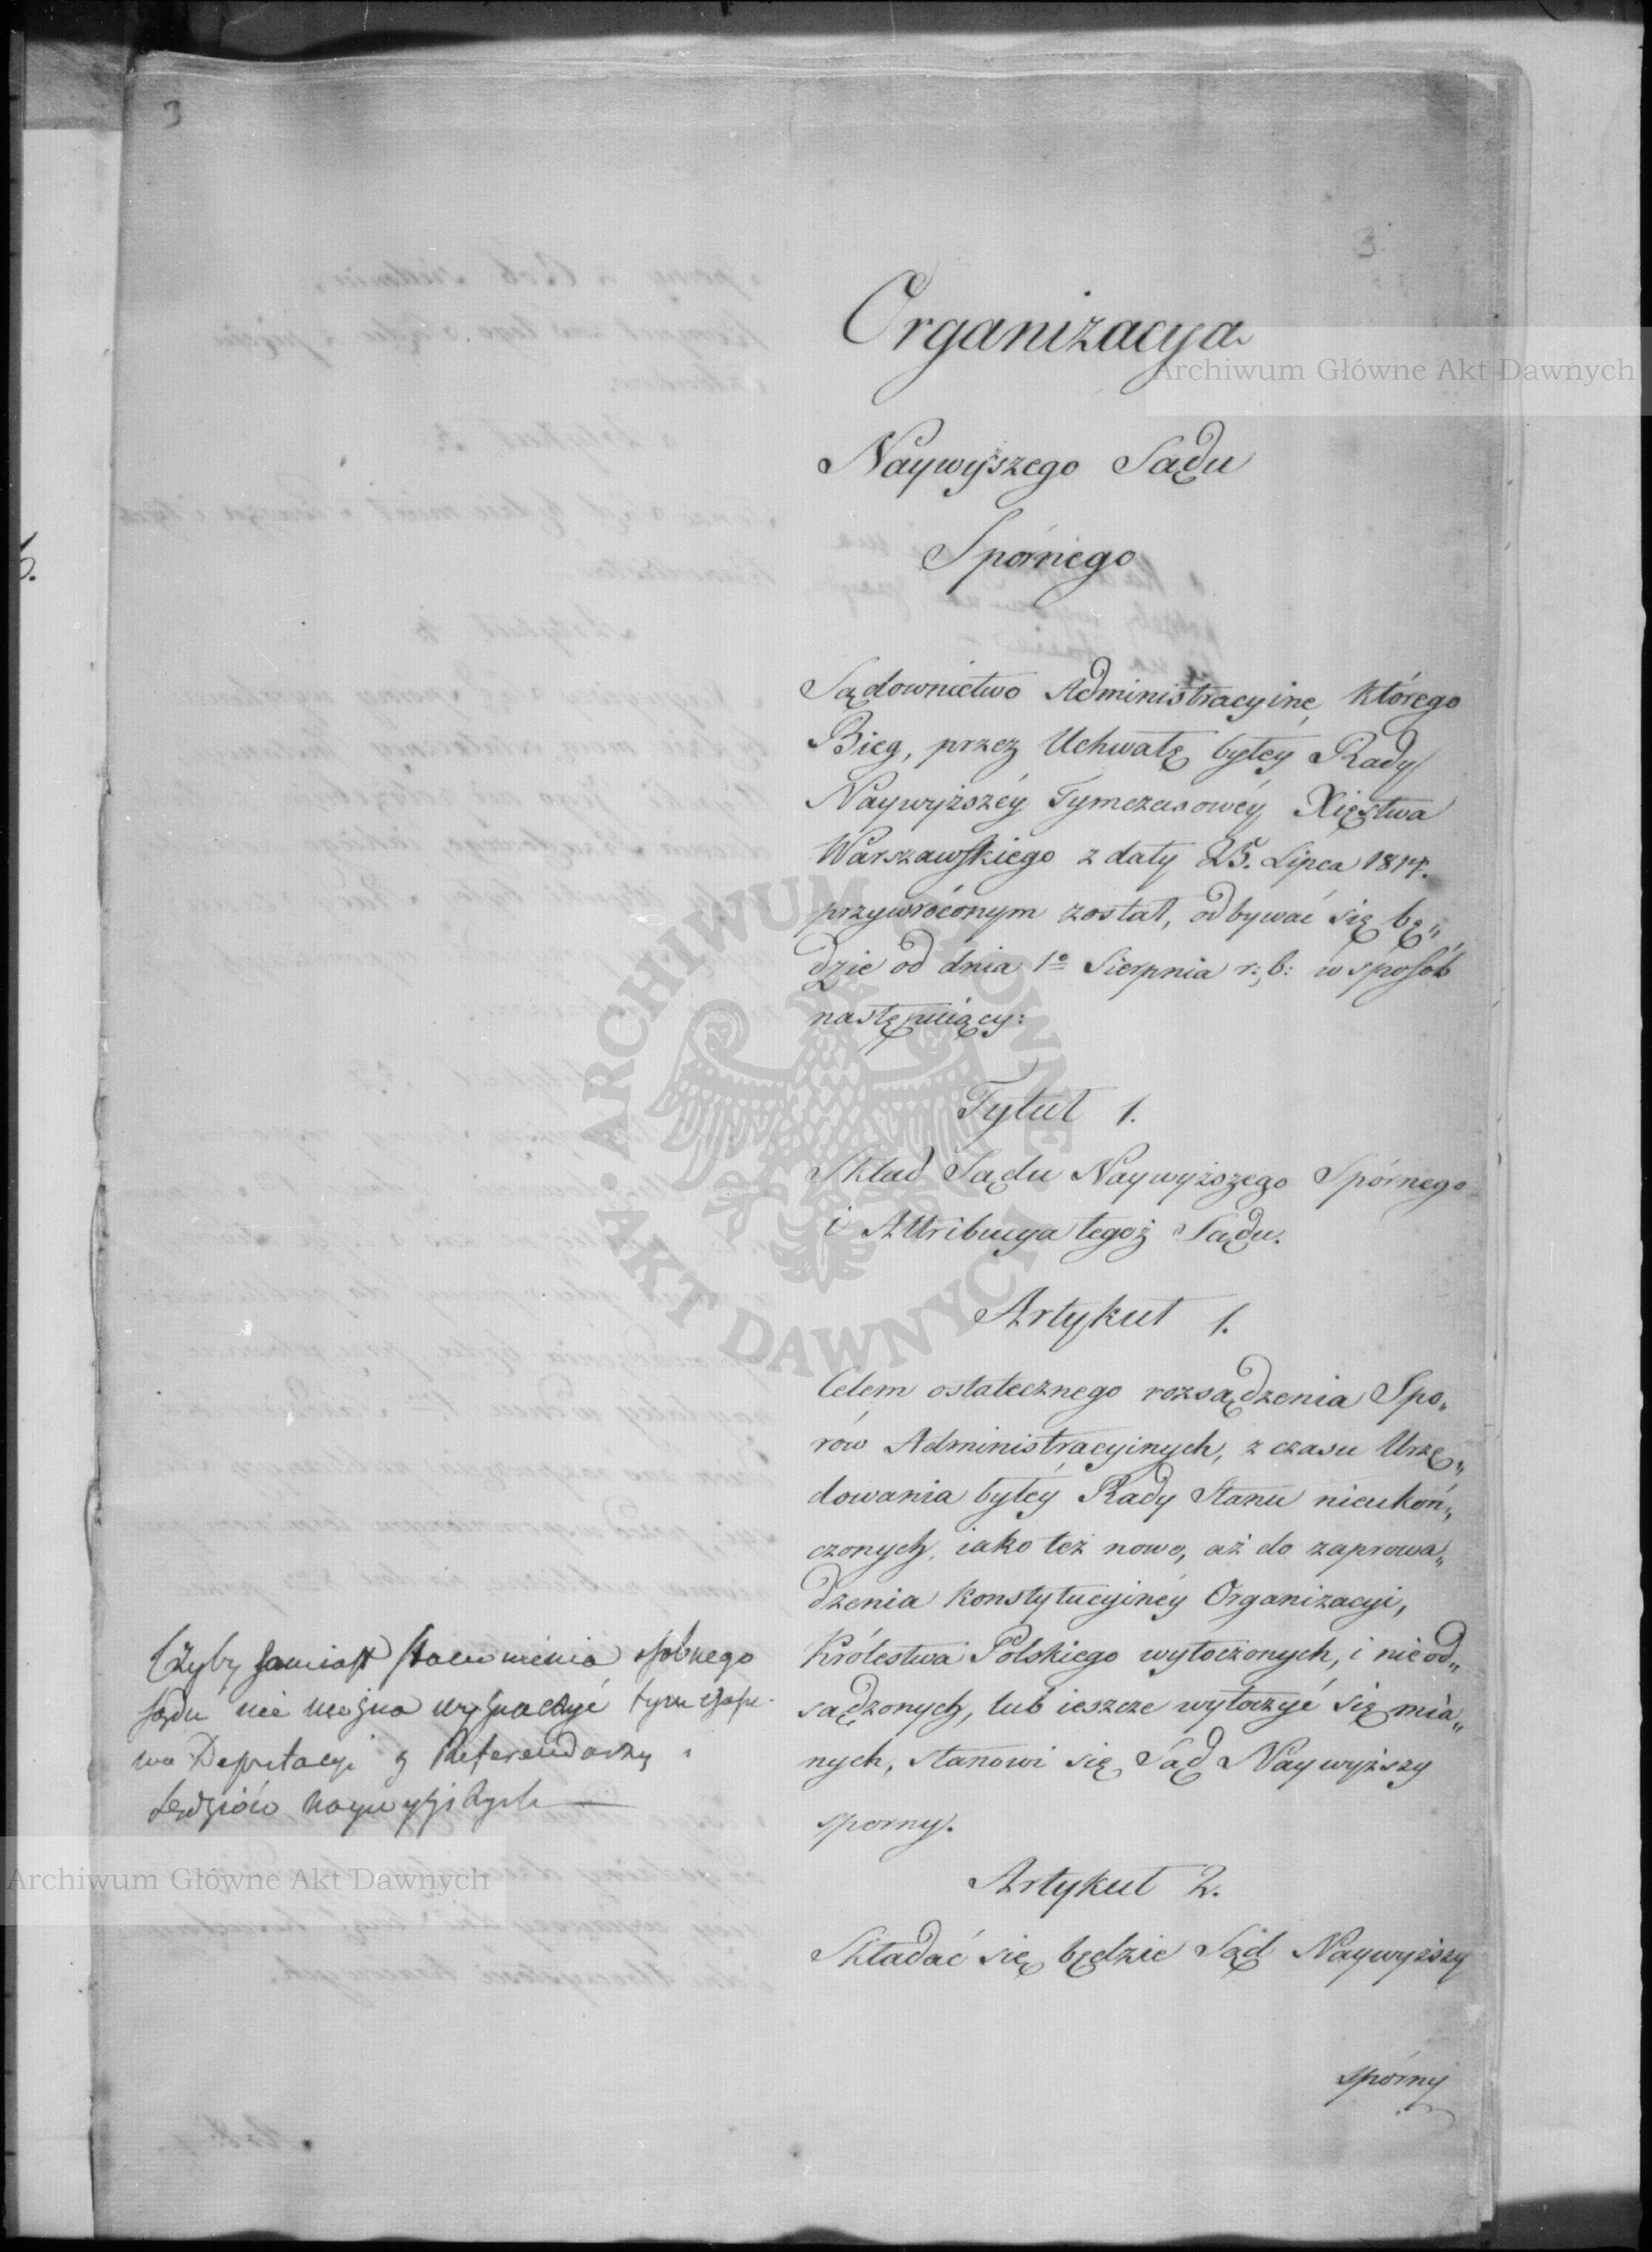 3
3
Organizacya
Naywyższego Sądu
Spórnego
Sądownictwo Administracyine, którego
Bieg, przez Uchwałę byłéy Rady
Naywyższéy Tymczasowéy Xięstwa
Warszawskiego z daty 25. Lipca 1814.
przywróconym został, odbywać się bę„
dzie od dnia 1º Sierpnia r: b: w sposób
następuiący:
Tytuł 1.
Skład Sądu Naywyższego Spórnego
i Attribucya tegoż Sądu.
Artykuł 1.
Celem ostatecznego rozsądzenia Spo„
rów Administracyinych, z czasu Urzę„
dowania byłéy Rady Stanu nieukoń„
czonych, iako też nowo, aż do zaprowa„
dzenia Konstytucyinéy Organizacyi,
Królestwa Polskiego wytoczonych, i nieod„
sądzonych, lub ieszcze wytoczyć się mia„
nych, stanowi się Sąd Naywyższy
sporny.
Czyby zamiast stanowienia osobnego
sądu nie można wyznaczyć tym czaso-
wo Deputacyi z Referendarzy i
Sędziów naywyższych —
Artykuł 2.
Składać się będzie Sąd Naywyższy
spórny
Archiwum Główne Akt Dawnych
Archiwum Główne Akt Dawnych
ARCHIWUM GŁÓWNE · AKT DAWNYCH ·